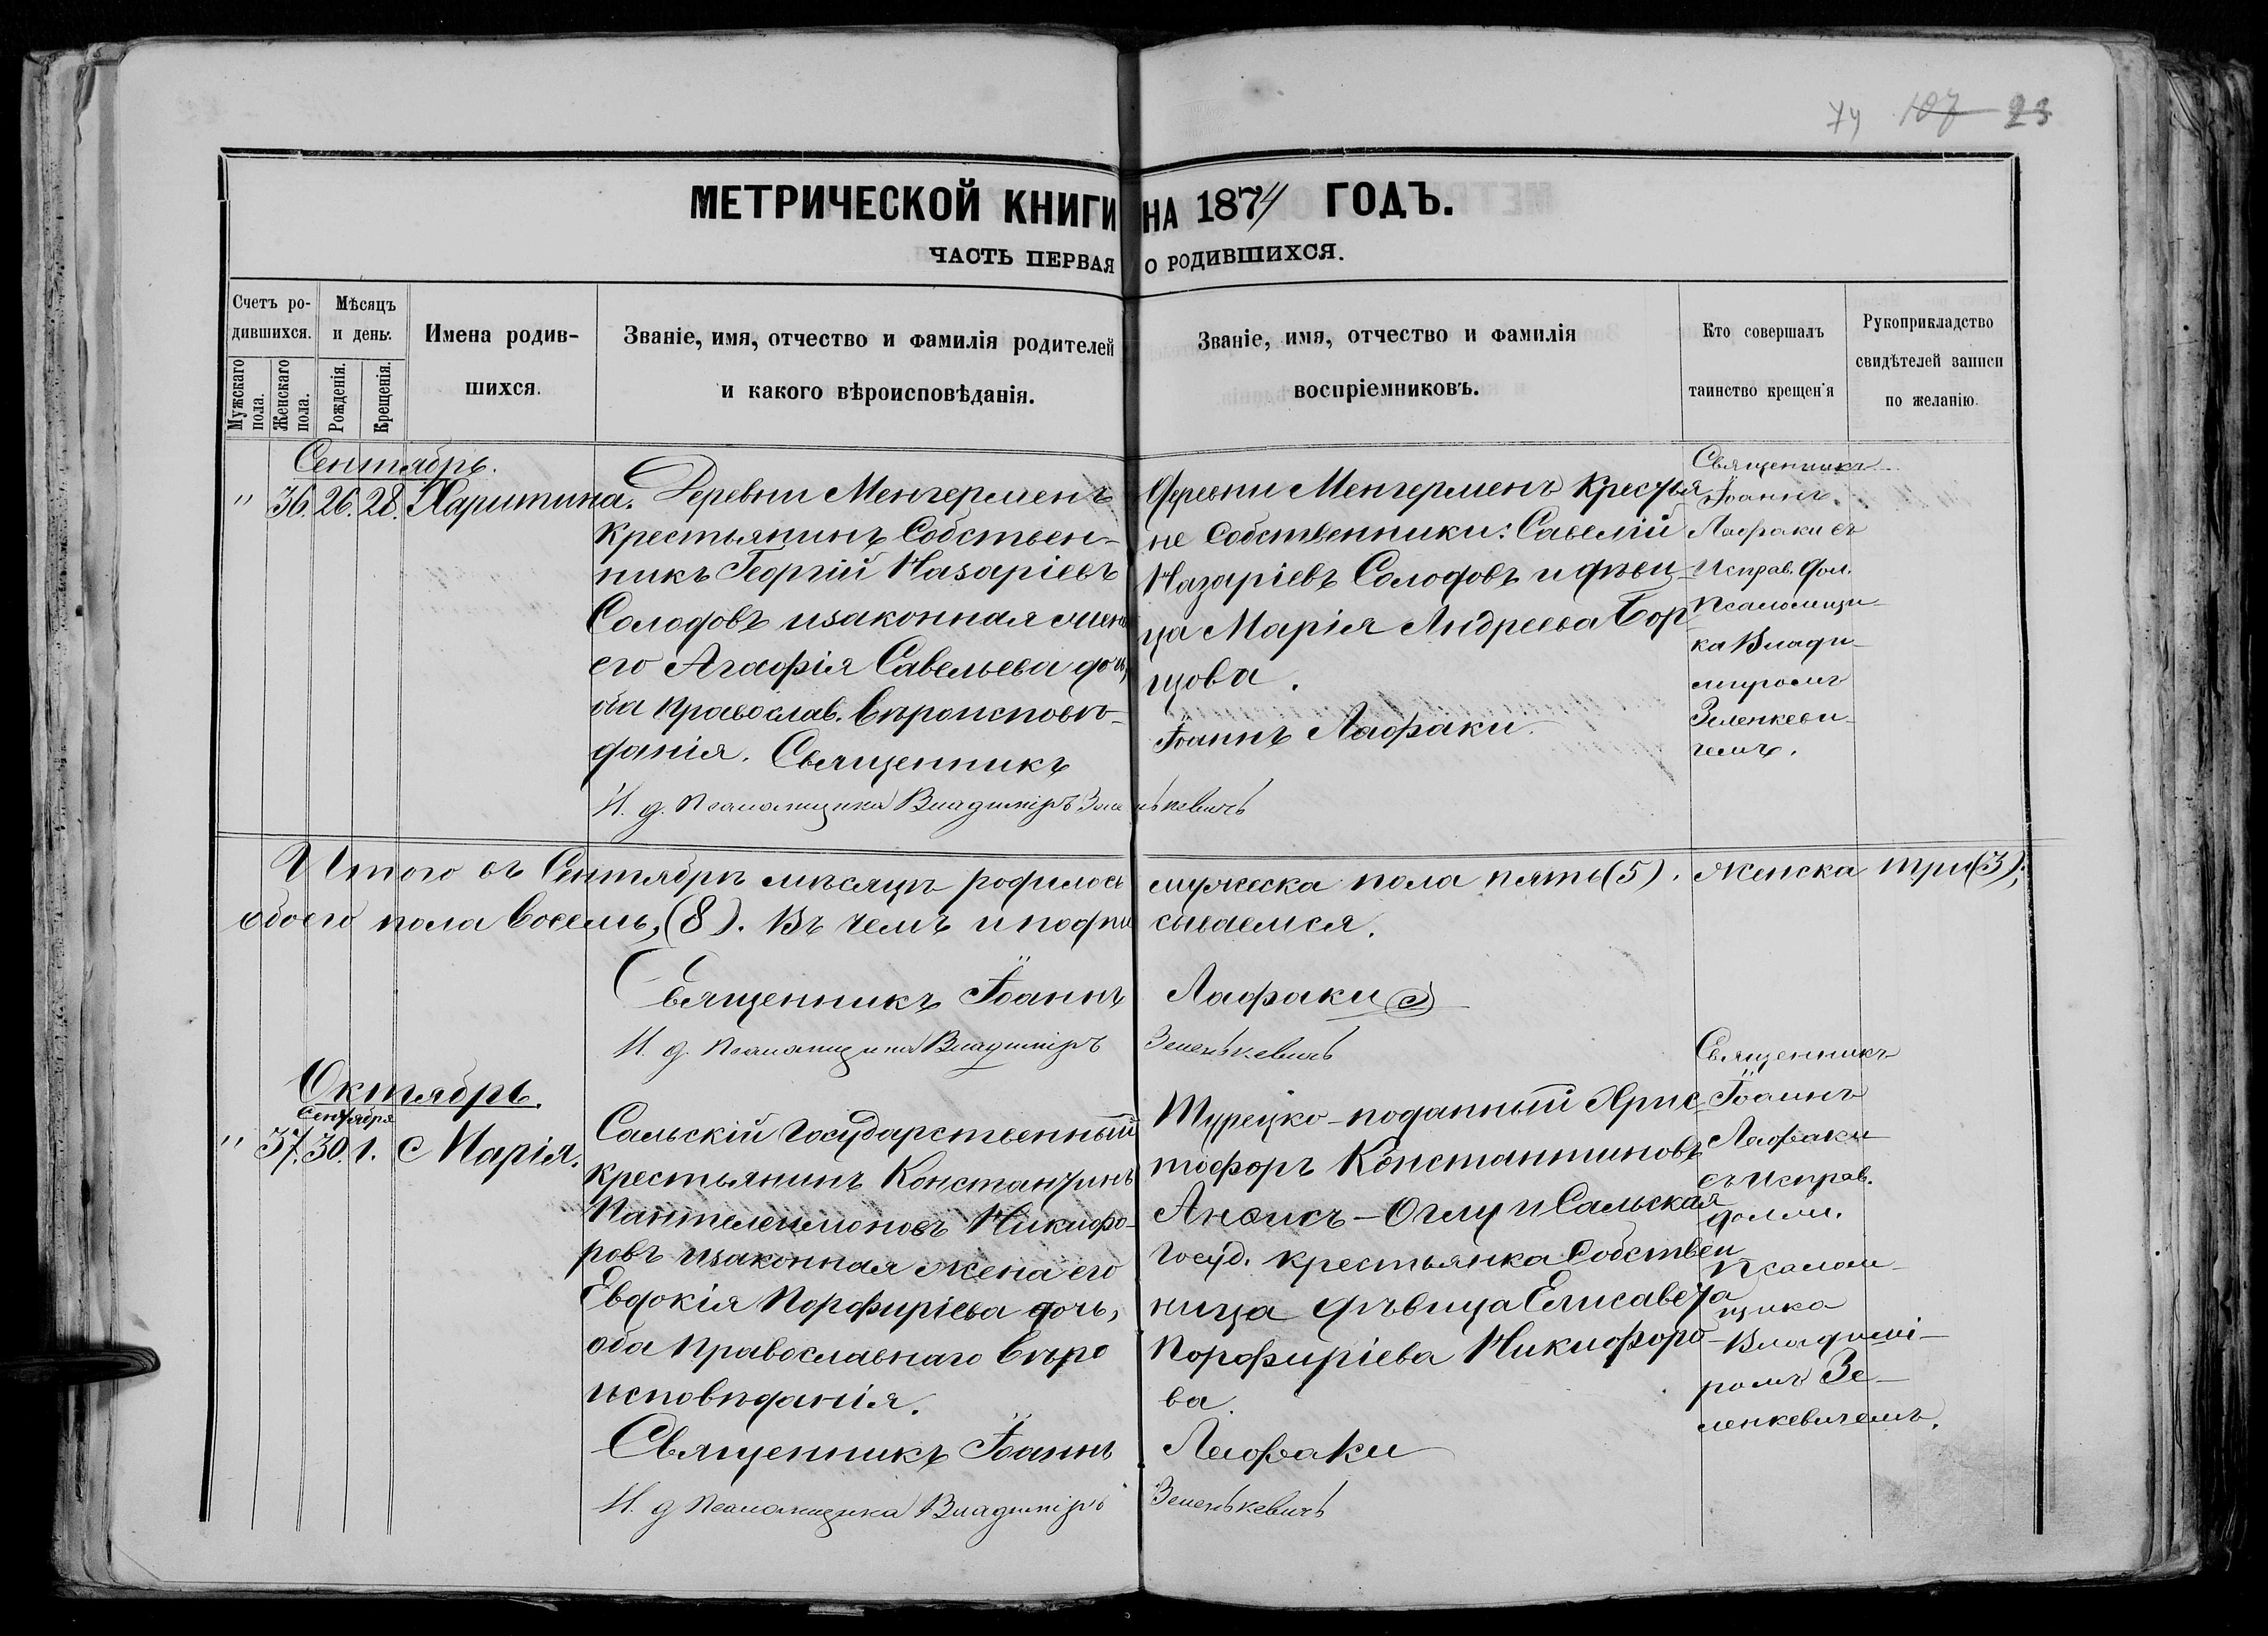 74 107 23
МЕТРИЧЕСКОЙ КНИГИ НА 1874 ГОДЪ.
ЧАСТЬ ПЕРВАЯ О РОДИВШИХСЯ.
Счетъ ро-
дившихся.
Мужскаго пола.
Женскаго пола.
Мѣсяцъ
и день.
Рожденія.
Крещенія.
Имена родив-
шихся.
Званіе, имя, отчество и фамилія родителей
и какого вѣроисповѣданія.
Званіе, имя, отчество и фамилія
воспріемниковъ.
Кто совершалъ
таинство крещенія
Рукоприкладство
свидѣтелей записи
по желанію.
Сентябрь.
" 36. 26. 28. Харитина.
Деревни Менгерменъ
крестьянинъ собствен-
никъ Георгій Назаріевъ
Солодовъ и законная жена
его Агафія Савельева дочь,
оба православ. вѣроисповѣ-
данія. Священникъ
И. д. Псаломщика Владиміръ Зеленькевичъ
Деревни Менгерменъ крестья
не собственники: Савелій
Назаріевъ Солодовъ и дѣви-
ца Марія Андреева Бор
щова.
Іоаннъ Лафаки.
Священникъ
Іоаннъ
Лафаки съ
исправ. дол.
Псаломщи-
ка Влади-
миромъ
Зеленкеви-
чемъ.
Итого въ Сентябрѣ мѣсяцѣ родилось мужеска пола пять (5). Женска три (3);
обоего пола восемь, (8). Въ чемъ и подписываемся.
Священникъ Іоаннъ Лафаки
И. д. Псаломщика Владиміръ Зеленькевичъ
Октябрь.
Сентября
" 37. 30. 1. Марія.
Сальскій государственный
крестьянинъ Константинъ
Пантелеимоновъ Никифо-
ровъ и законная жена его
Евдокія Порфиріева дочь,
оба православнаго вѣро
исповѣданія.
Священникъ Іоаннъ Лафаки
И. д. Псаломщика Владиміръ Зеленькевичъ
Турецко-поданный Хрис
тофоръ Константиновъ
Оглу и Сальская
госуд. крестьянка собствен
ница дѣвица Елисавета
Порфиріева Никифоро-
ва.
Священникъ
Іоаннъ
Лафаки
съ исправ.
должн.
Псалом-
щика
Владимі-
ромъ Зе-
ленкевичемъ.